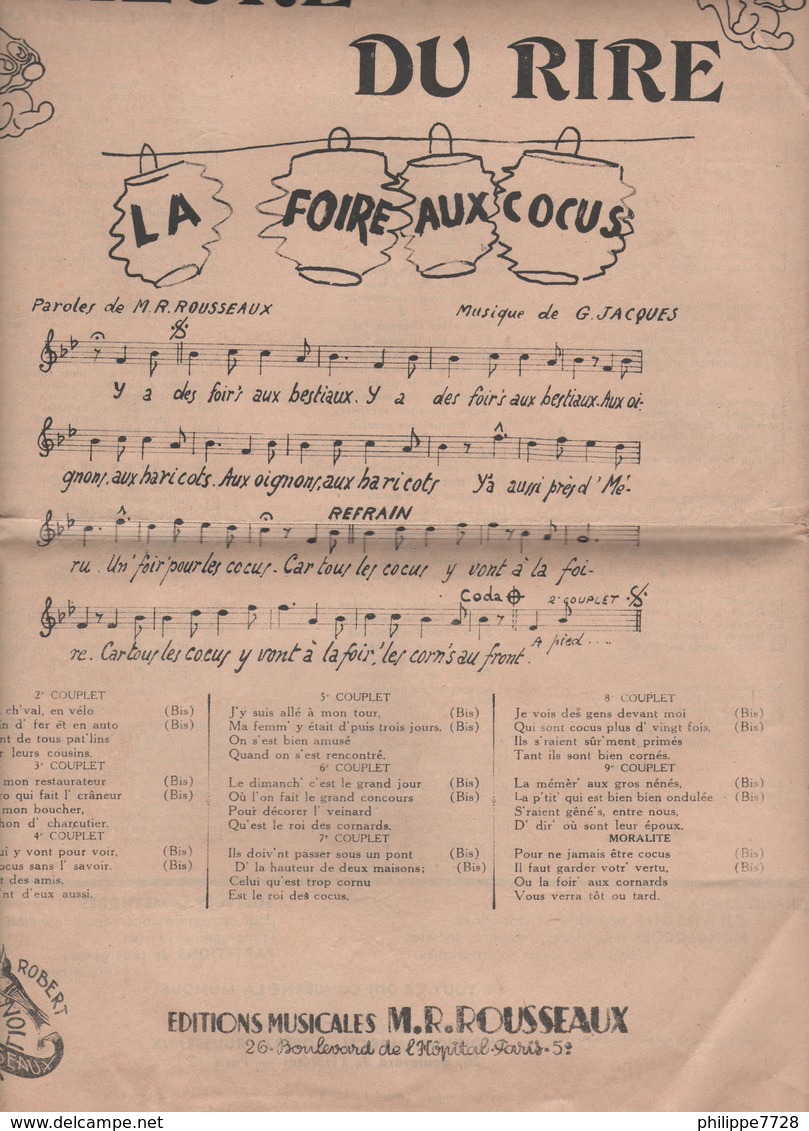 DU RIRE
LA FOIRE AUX COCUS
Paroles de M.R. ROUSSEAUX
Musique de G. JACQUES
Y a des foir's aux bestiaux. Y a des foir's aux bestiaux. Aux oi-
gnons, aux haricots. Aux oignons, aux haricots Y'a aussi près d' Mé-
REFRAIN
ru. Un' foir' pour les cocus. Car tous les cocus y vont à la foi-
Coda 2e COUPLET
re. Car tous les cocus y vont à la foir', les corn's au front. A pied....
2e COUPLET
ch'val, en vélo (Bis)
in d' fer et en auto (Bis)
nt de tous pat'lins
r leurs cousins.
3e COUPLET
mon restaurateur (Bis)
ro qui fait l' crâneur (Bis)
mon boucher,
hon d' charcutier.
4e COUPLET
ui y vont pour voir, (Bis)
ocus sans l' savoir. (Bis)
t des amis,
'nt d'eux aussi.
5e COUPLET
J'y suis allé à mon tour, (Bis)
Ma femm' y était d'puis trois jours. (Bis)
On s'est bien amusé
Quand on s'est rencontré.
6e COUPLET
Le dimanch' c'est le grand jour (Bis)
Où l'on fait le grand concours (Bis)
Pour décorer l' veinard
Qu'est le roi des cornards.
7e COUPLET
Ils doiv'nt passer sous un pont (Bis)
D' la hauteur de deux maisons; (Bis)
Celui qu'est trop cornu
Est le roi des cocus.
8e COUPLET
Je vois des gens devant moi (Bis)
Qui sont cocus plus d' vingt fois, (Bis)
Ils s'raient sûr'ment primés
Tant ils sont bien cornés.
9e COUPLET
La mémèr' aux gros nénés, (Bis)
La p'tit' qui est bien bien ondulée (Bis)
S'raient gêné's, entre nous,
D' dir' où sont leur époux.
MORALITE
Pour ne jamais être cocus (Bis)
Il faut garder votr' vertu, (Bis)
Ou la foir' aux cornards
Vous verra tôt ou tard.
ROBERT
EDITIONS MUSICALES M.R. ROUSSEAUX
26. Boulevard de l'Hôpital. Paris. 5e
delcampe.net
philippe7728